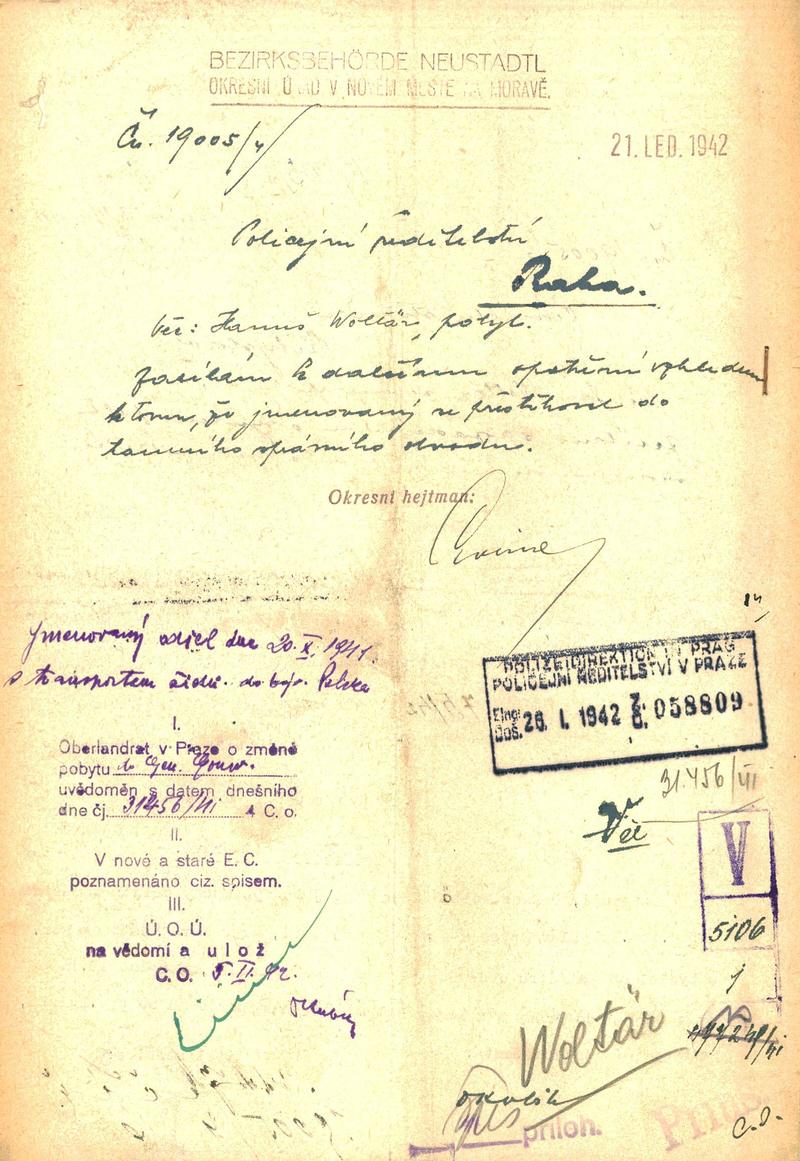 BEZIRKSBEHÖRDE NEUSTADTL
OKRESNÍ ÚŘAD V NOVÉM MĚSTĚ NA MORAVĚ.
Čís. 19005/4
21. LED. 1942
Policejní ředitelství
Praha.
Věc: Hanuš Woltär, pobyt.
Zasílám k dalšímu opatření vzhledem
k tomu, že jmenovaný se přestěhoval do
tamního správního obvodu.
Okresní hejtman:
Jmenovaný odjel dne 20. X. 1941.
s transportem židů do býv. Polska
POLIZEIDIREKTION IN PRAG
POLICEJNÍ ŘEDITELSTVÍ V PRAZE
Eing.
Doš. 26. I. 1942 Z. Č. 058809
I.
Oberlandrat v Praze o změně
pobytu do Gen. Gouv.
uvědoměn s datem dnešního
dne čj. 31456/VI 4 C. o.
II.
V nové a staré E. C.
poznamenáno ciz. spisem.
III.
Ú. O. Ú.
na vědomí a ulož
C. O. 5. II. 42.
31.456/VII
V
5106
Woltär
příloh.
C. O.